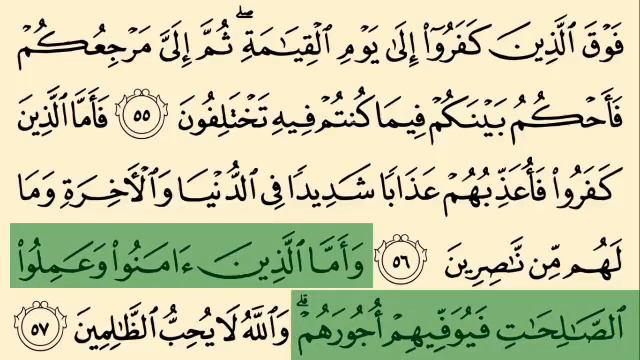 فَوْقَ ٱلَّذِينَ كَفَرُوٓا۟ إِلَىٰ يَوْمِ ٱلْقِيَـٰمَةِ ۖ ثُمَّ إِلَىَّ مَرْجِعُكُمْ
فَأَحْكُمُ بَيْنَكُمْ فِيمَا كُنتُمْ فِيهِ تَخْتَلِفُونَ ٥٥ فَأَمَّا ٱلَّذِينَ
كَفَرُوا۟ فَأُعَذِّبُهُمْ عَذَابًا شَدِيدًا فِى ٱلدُّنْيَا وَٱلْـَٔاخِرَةِ وَمَا
لَهُم مِّن نَّـٰصِرِينَ ٥٦ وَأَمَّا ٱلَّذِينَ ءَامَنُوا۟ وَعَمِلُوا۟
ٱلصَّـٰلِحَـٰتِ فَيُوَفِّيهِمْ أُجُورَهُمْ ۗ وَٱللَّهُ لَا يُحِبُّ ٱلظَّـٰلِمِينَ ٥٧